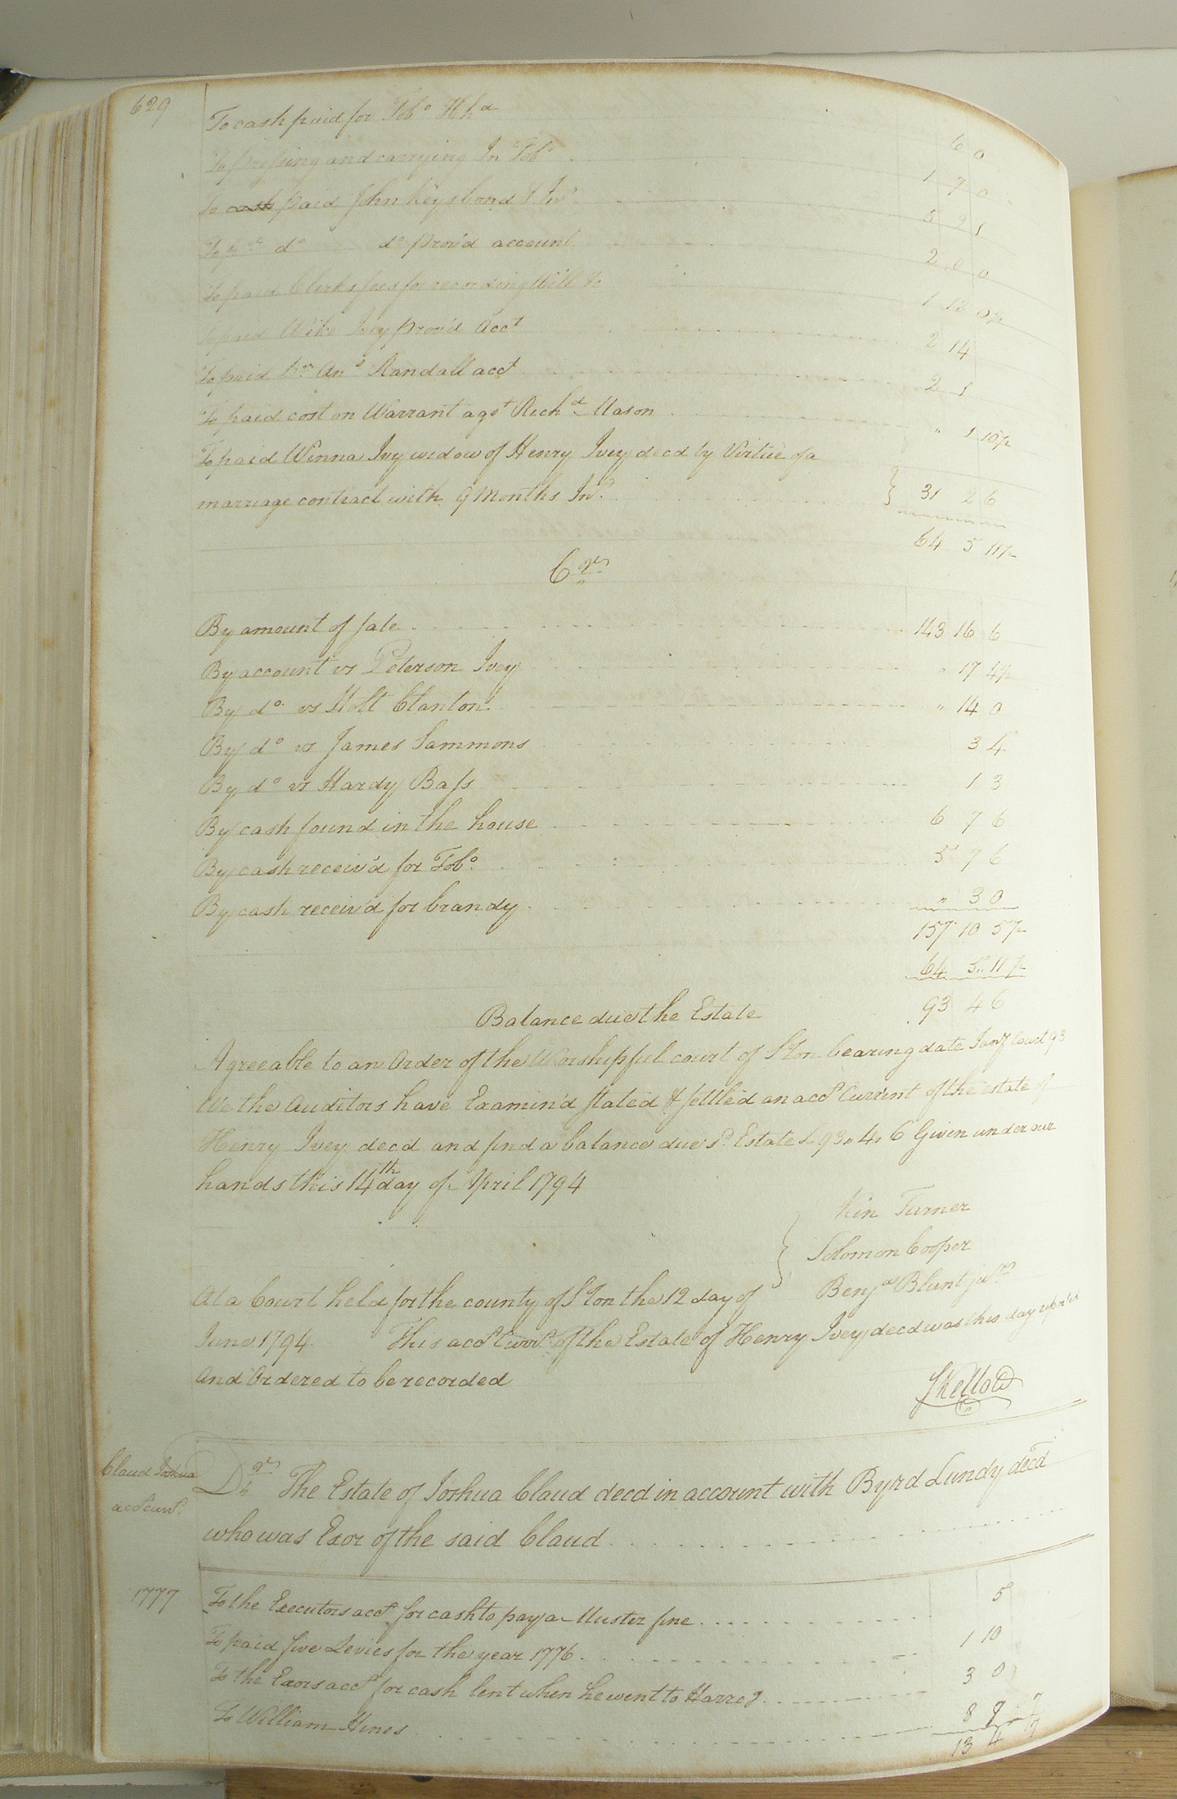 629
To cash paid for Tobo Hhd 6 0
To prizing and carrying In Tobo 1 7 0
To cash paid John Keys bond & Int 5 9 1
To pd do do prov'd account 2 0 0
To paid Clerks fees for recording Will &c 1 12
paid Ivey prov'd Acct 2 14
To paid Dr Ans Randall acct 2 1
To paid cost on Warrant agst Richd Mason " 1 10½
To paid Winna Ivy widow of Henry Ivey decd by Virtue of a
marriage contract with 9 Months Int. } 31 2 6
64 5 11½
Crs
By amount of sale 143 16 6
By account vs Peterson Ivey " 17 4½
By do vs Holt Clanton " 14 0
By do vs James Sammons 3 4
By do vs Hardy Bass 1 3
By cash found in the house 6 7 6
By cash receiv'd for Tobo. 5 7 6
By cash receiv'd for brandy " 3 0
157 10 5½
64 5 11½
Balance due the Estate 93 4 6
Agreeable to an Order of the Worshipful court of Ston bearing date Jany Court 93
We the Auditors have Examin'd stated & settled an acct Current of the estate of
Henry Ivey decd and find a balance due sd Estate £93" 4" 6 Given under our
hands this 14th day of April 1794
Kin Turner
Solomon Cooper
Benja Blunt jur
At a Court held for the county of Ston the 12 day of
June 1794 This acct Curr. of the Estate of Henry Ivey decd was this day
And Ordered to be recorded
SKello CC
Claud Joshua
acct curt.
Dr The Estate of Joshua Claud decd in account with Byrd Lundy decd
who was Exor of the said Claud
1777 To the Executors acct for cash to pay a Muster fine 5
To paid five Levies for the year 1776 1 10
To the Exors acct for cash lent when he went to 3 0
To William Hines 8 9 7
13 4 7